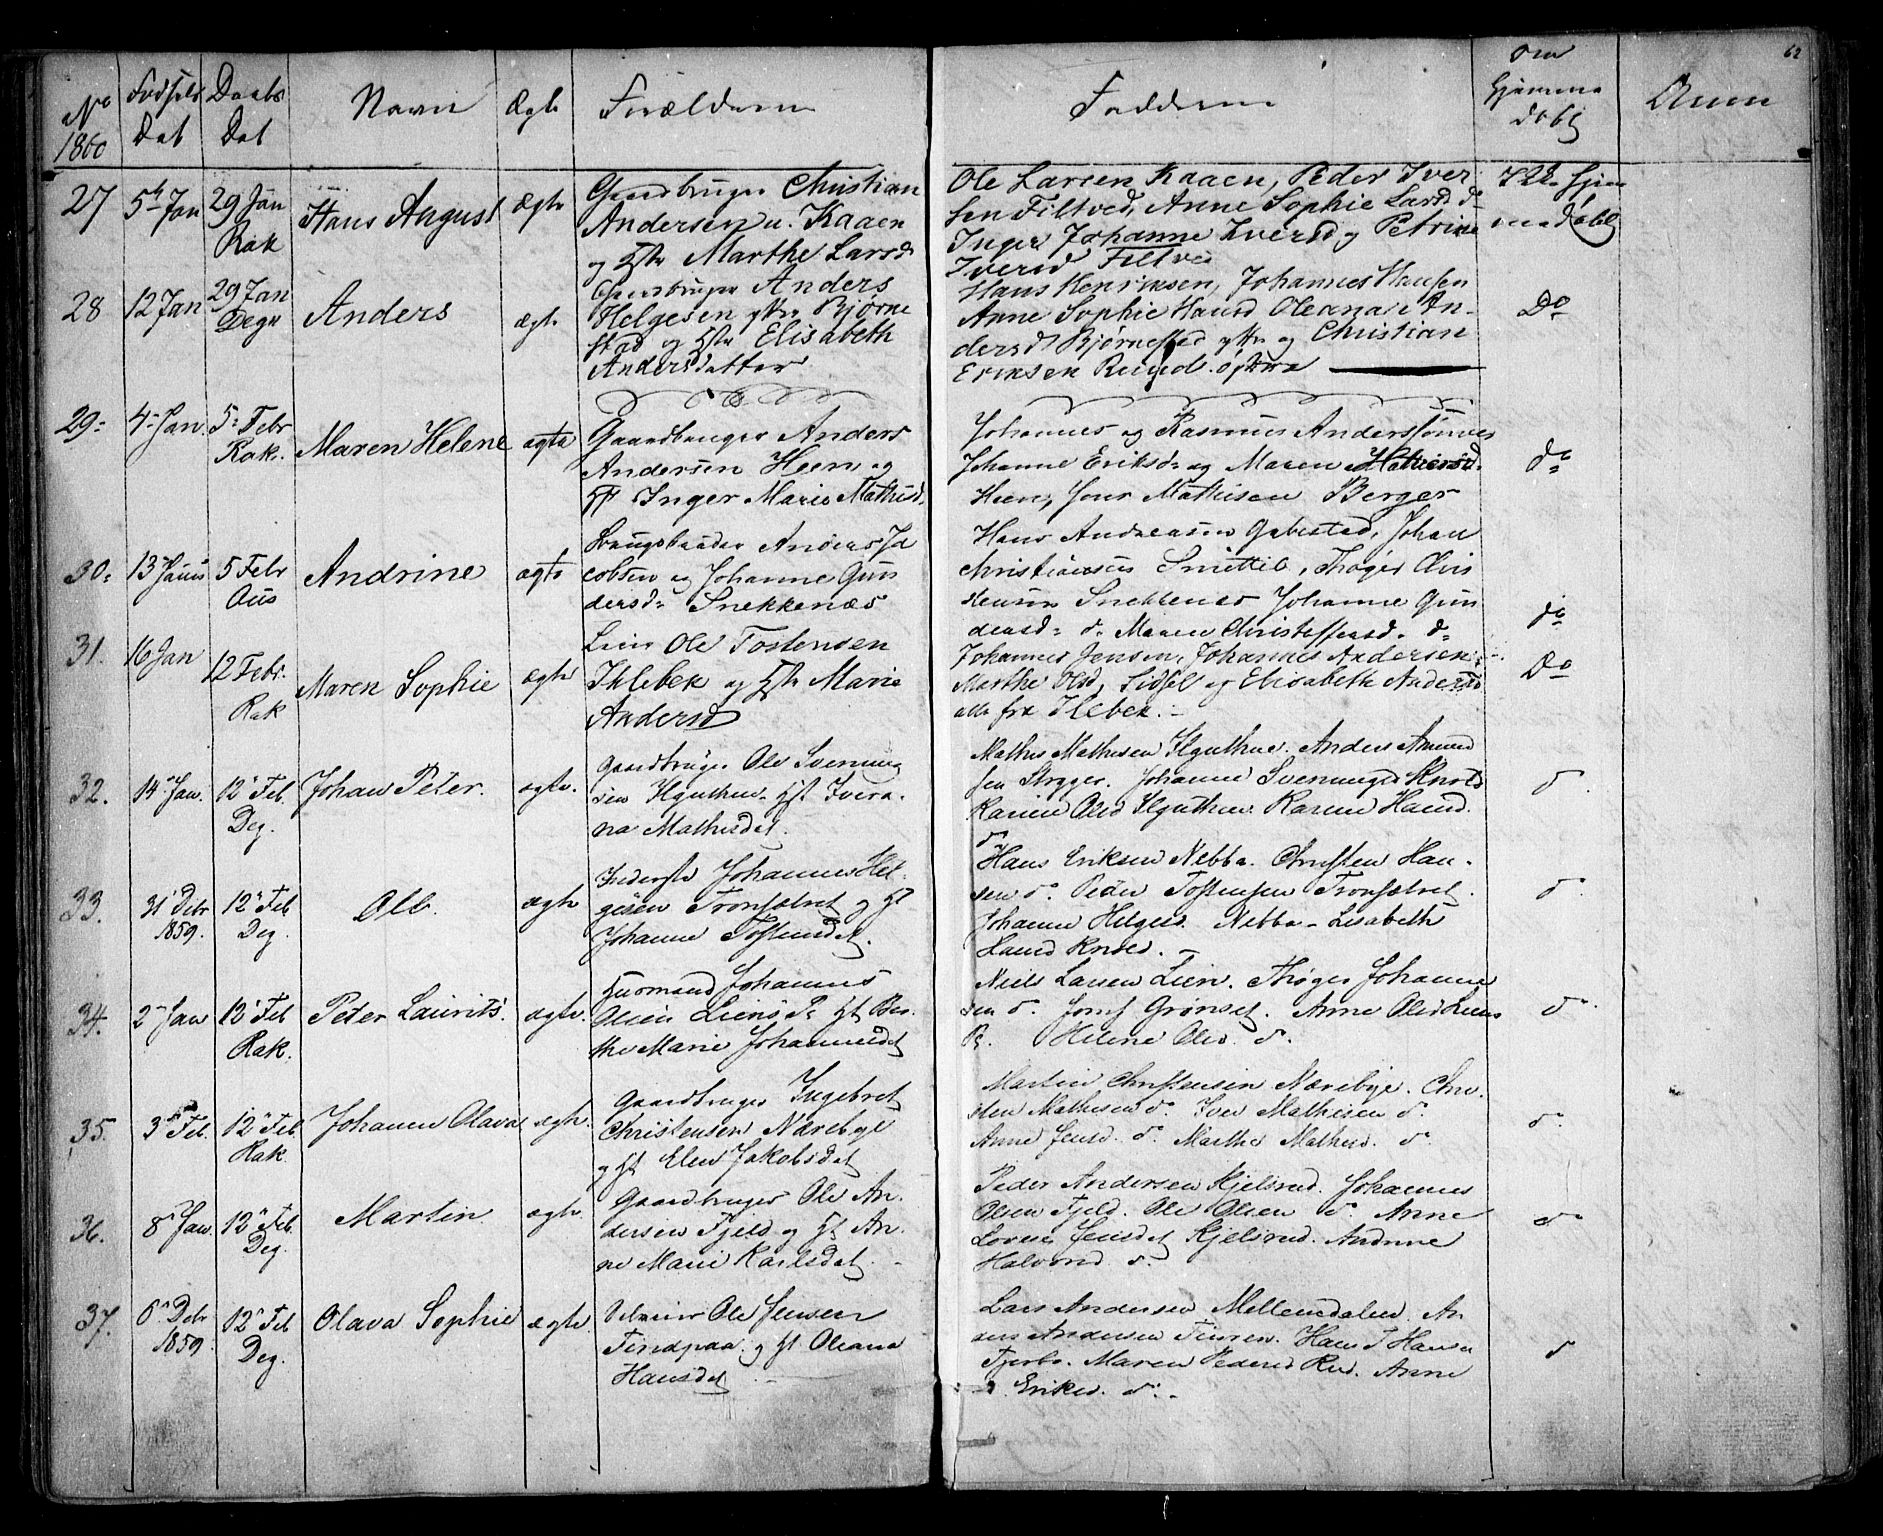 62
No
1860
Fødsels
Dat
Daabs
Dat
Navn
Ægte
Forældrene
Fadderne
om
Hjemme
døbt
Anm
27
5te Jan
29 Jan
Rak
Hans August
Ægte
Gaardbruger Christian
Andersen u. Kaaen
og Hstr Marthe Larsd
Ole Larsen Kaaen, Peder Iver
sen Filtved, Anne Sophie Larsd do
Inger Johanne Iversd og Petrine
Iversd Filtved
Hjem
me Døbt
28
12 Jan
29 Jan
Degn
Anders
ægte
Gaardbruger Anders
Helgesen ytre Bjørne
stad og Hstr Elisabeth
Andersdatter
Hans Henriksen, Johannes Hansen
Anne Sophie Hansd Oleana An-
dersd Bjørnestad ytre og Christian
Eriksen Rund
Do
29
4 Jan
5 Febr
Rak.
Maren Helene
ægte
Gaardbruger Anders
Andersen Heen og
H Inger Marie Mathisd
Johannes og Rasmus Anderssønner
Johanne Eriksd og Maren
Heen, Mathisen Berger
do
30
13 Janu
5 Febr
Aus
Andrine
ægte
Anders Ja
cobsen og Johanne Gun
dersd Snekkenæs
Hans Andreasen Gabestad, Johan
Christiansen Smittil, Thøger Chris
tensen Snekkenes Johanne Gun
dersd do Maren Christoffersd. do
do
31.
16 Jan
12 Febr.
Rak
Maren Sophie
ægte
Leier Ole Tostensen
Ihlebek og Hstr Marie
Andersd
Johannes Jensen, Johannes Andersen
Marthe Olsd, Sidsel og Elisabeth Andersd
alle fra Ilebek.
Do
32.
14 Jan.
12 Feb.
Deg.
Johan Peter.
ægte.
Gaardbruger Ole Svenning
sen Ilguthue Hst Ivera-
na Mathisdet.
Mathis Mathisen Ilguthue. Anders Amund
sen Strygger. Johanne Svenningsd Knold
Karine Olsd Ilguthue Karen Hansd.
do
do
33.
31 Debr
1859.
12 Feb
Deg.
Ole.
ægte
Inderste Johannes Hel-
gesen Tronsætret og Hst
Johanne Tostensdet.
Hans Eriksen Nebba. Christen Han-
sen do. Peder Tostensen Tronsætret.
Johanne Helgesd. Nebba - Lisabeth
Hansd Knold.
do
34.
2 Jan
12 Feb
Rak.
Peter Laurits.
ægte.
Husmand Johannes
Olsen Liens P. Hst Ber-
the Marie Johannesdet
Niels Larsen Lien. Thøger Johanne
sen do. Josef Grønset. Anne Olsd Liens
P. Helene Olsd. do.
do
35.
3 Feb.
12 Feb.
Rak.
Johanne Olava
ægte.
Gaardbruger Ingebret
Christensen Nærebye
og Hst Elen Jakobsdet
Martin Christensen Nærebye. Chri-
sten Mathisen do. Iver Mathisen do.
Anne Jensd. do. Marthe Mathisd. do.
do
36.
8 Jan.
12 Feb.
Deg.
Martin.
ægte.
Gaardbruger Ole An-
dersen Fjeld og Hst An-
ne Marie Karlsdet.
Peder Andersen Kjelsrud. Johannes
Olsen Fjeld. Ole Olsen do Anne
Lovise Jensdet Kjelsrud. Andrine
Halvorsd do.
do
37.
6 Debr
1859.
12 Feb
Deg.
Olava Sophie
ægte.
Ole Jensen
Tindpaa og Hst Oleana
Hansdet
Lars Andersen Mellemdalen. An
ders Andersen Tinren. Hans T Hansen
Maren Pedersd Rud. Anne
Eriksd. do.
do